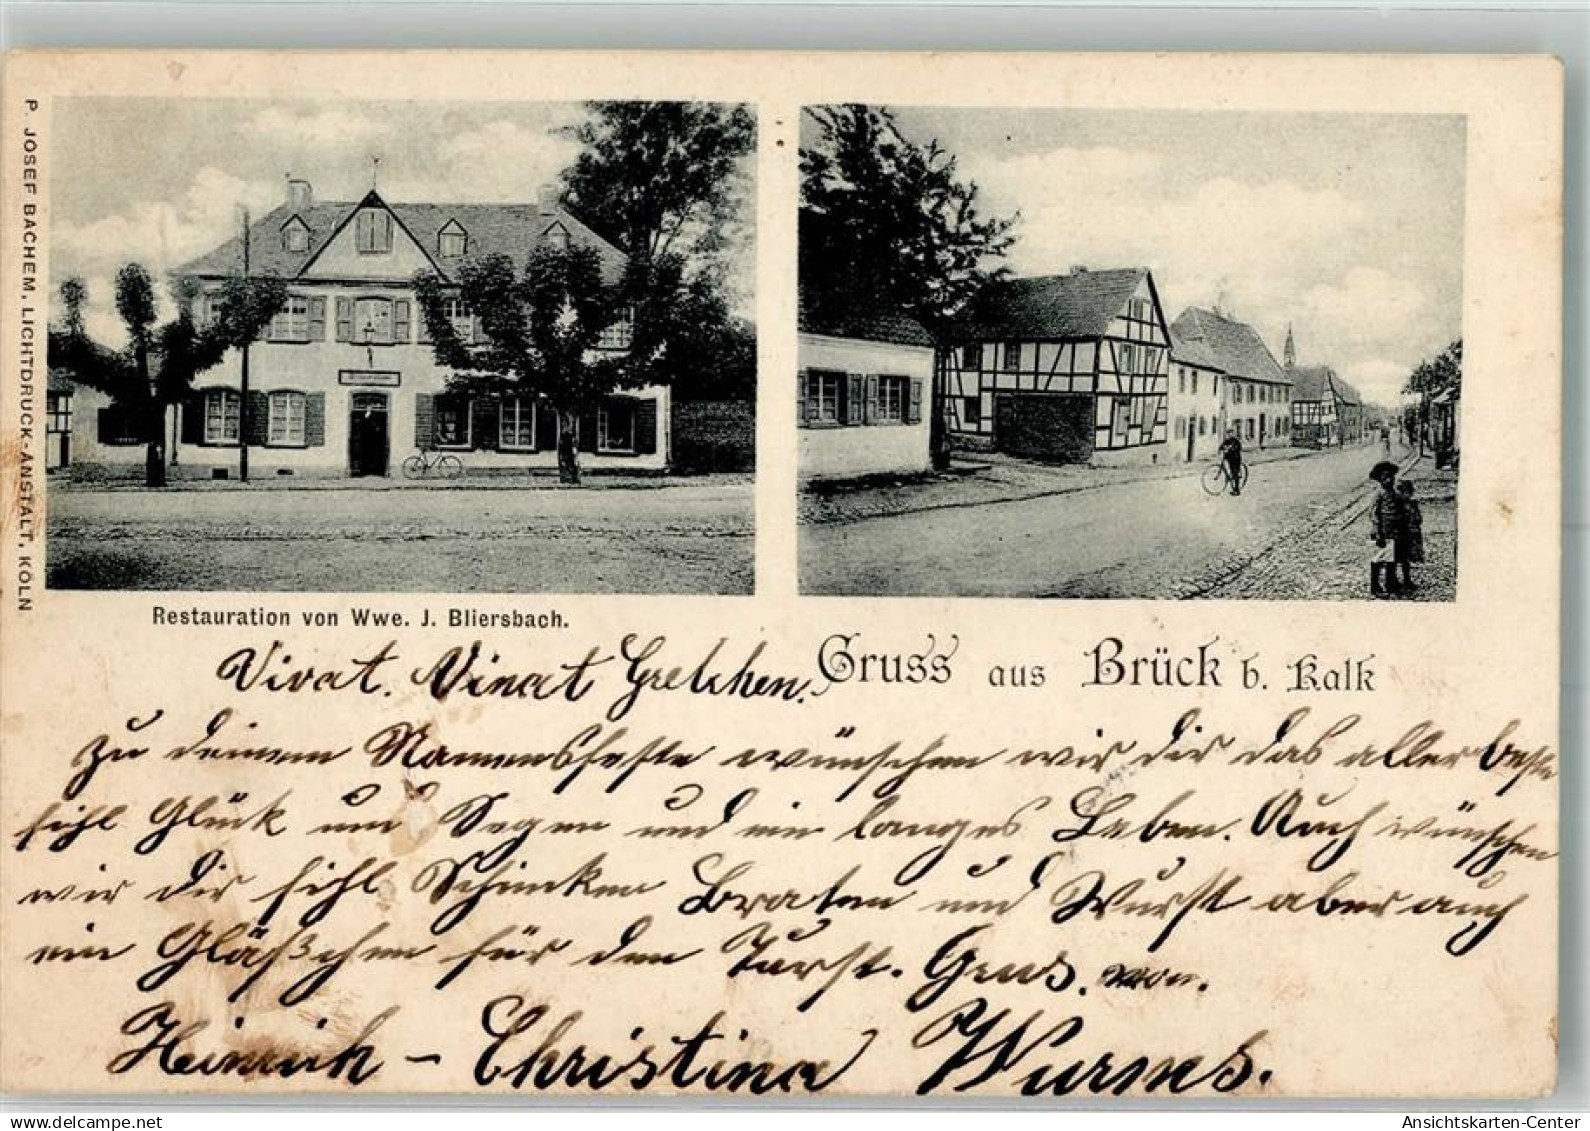 P. JOSEF BACHEM, LICHTDRUCK-ANSTALT, KÖLN.
Restauration von Wwe. J. Bliersbach.
Gruss aus Brück b. Kalk
Vivat. Vivat Gretchen.
Zu deinem Namensfeste wünschen wir dir das aller beste
fihl Glück und Segen und ein langes Leben. Auch wünschen
wir dir fihl Schinken Braten und Wurst aber auch
ein Gläßchen für den Turst. Grus. von.
Heinrich - Christina Wurms.
Ansichtskarten-Center